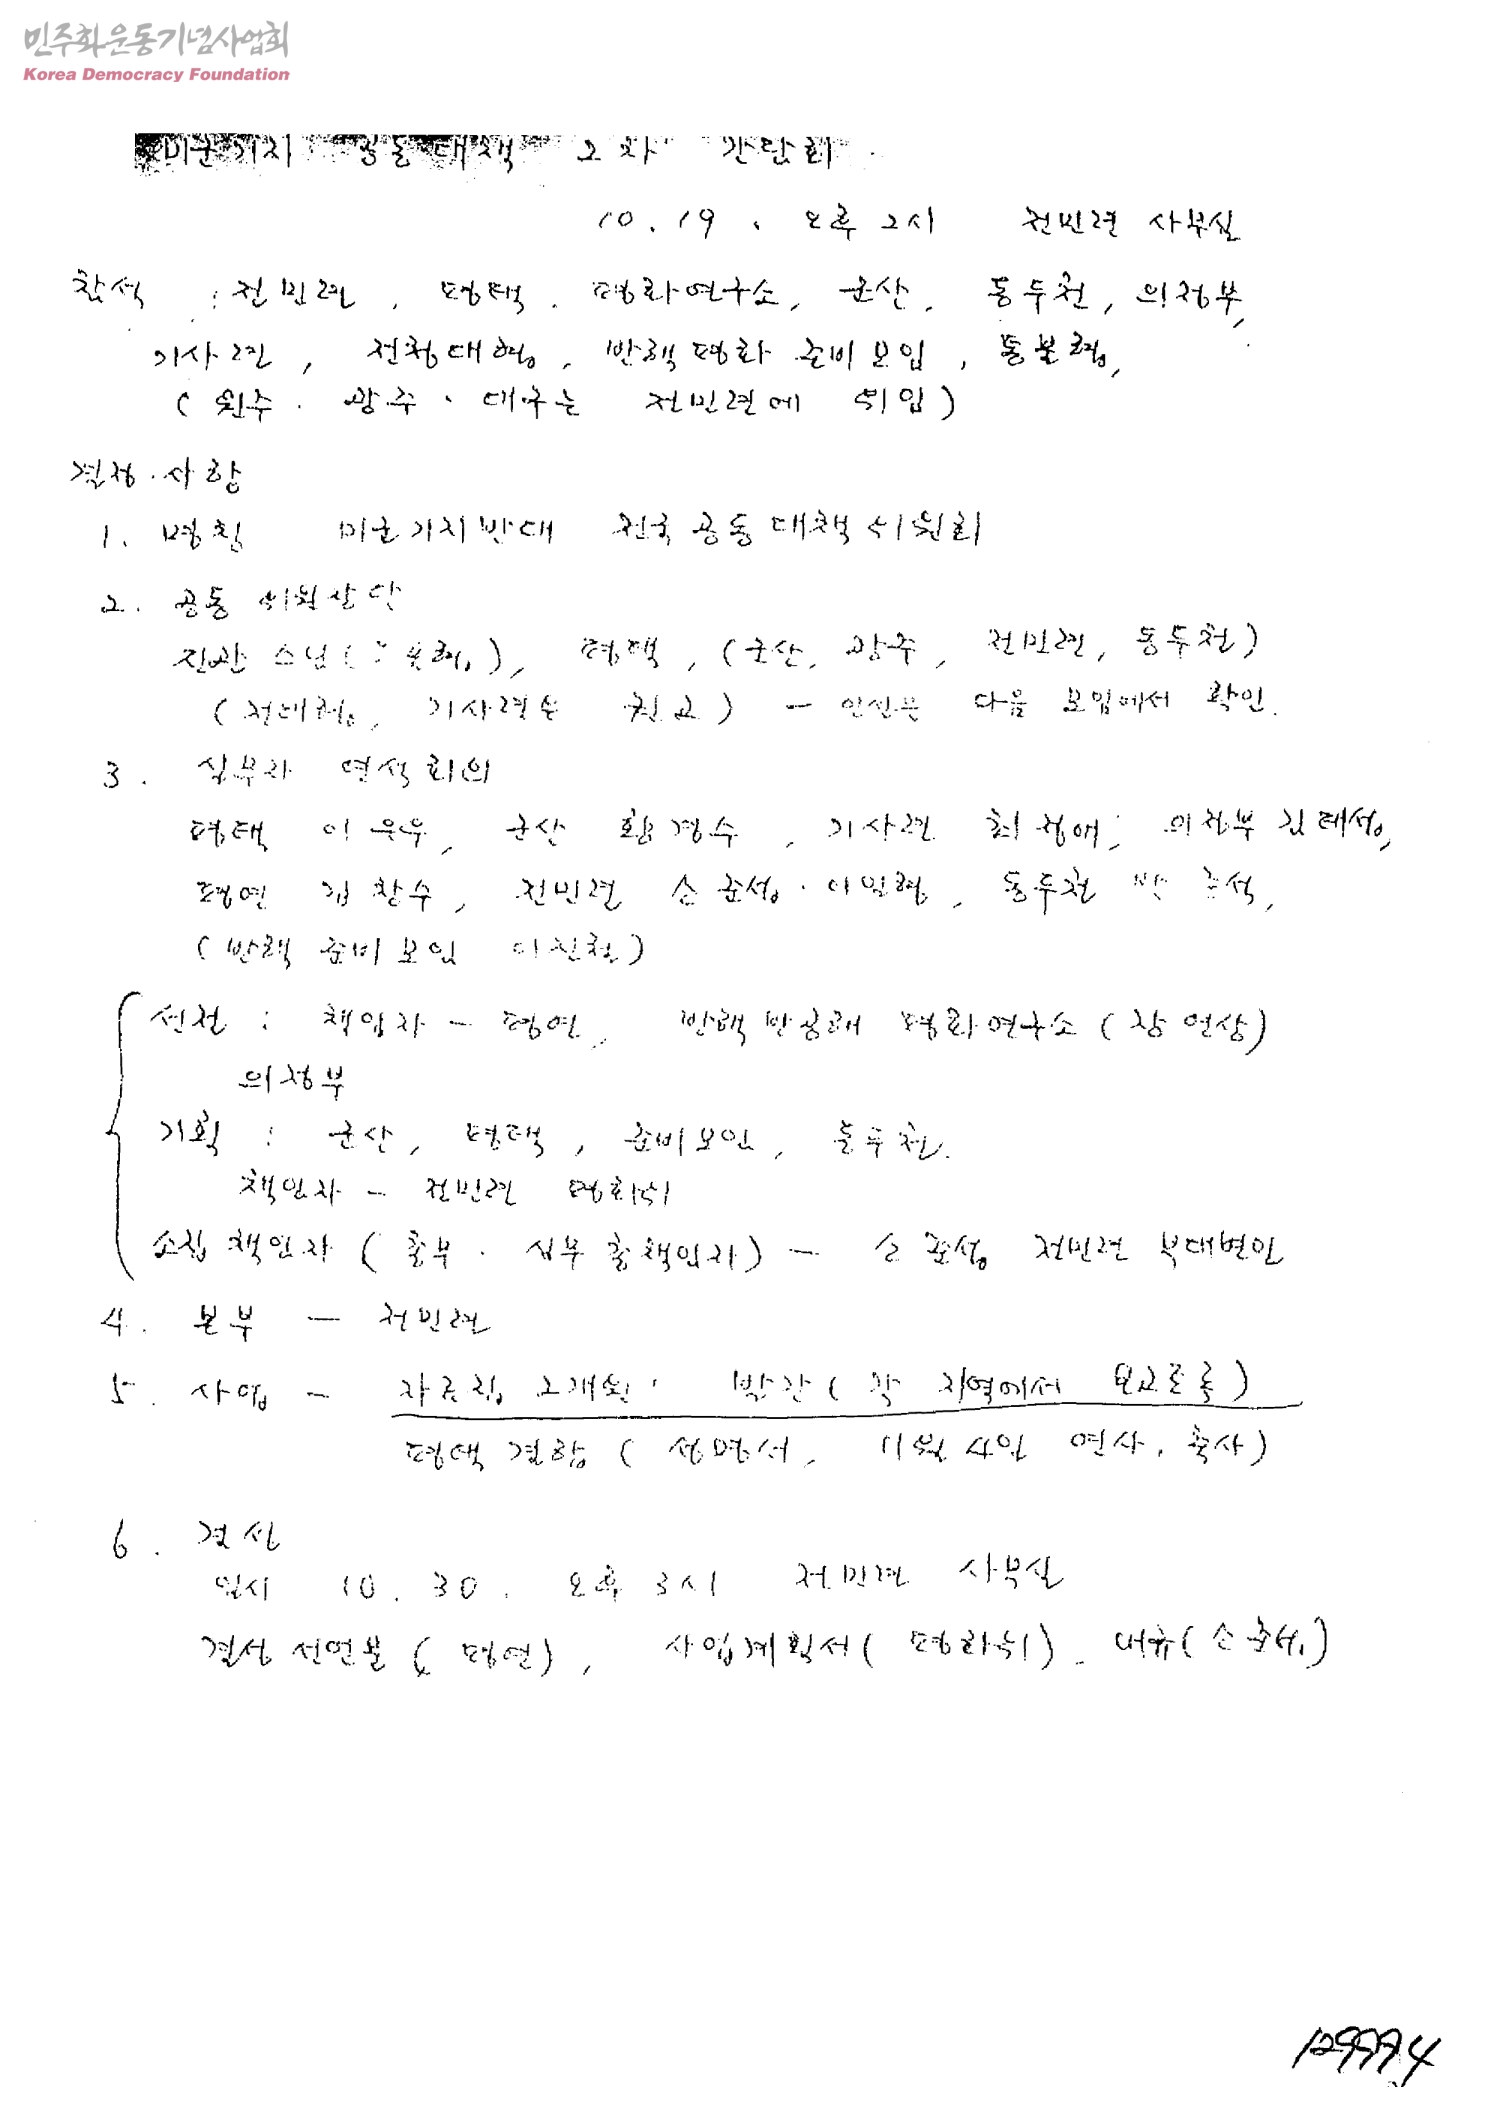 민주화운동기념사업회
Korea Democracy Foundation
미군기지 공동대책 2차 간담회
10. 19. 오후 2시 전민련 사무실
참석 : 전민련, 평택, 평화연구소, 군산, 동두천, 의정부,
기사련, 전청대협, 반핵평화 준비모임, 통불협,
(원주·광주·대구는 전민련에 위임)
결정·사항
1. 명칭 미군기지반대 전국공동대책위원회
2. 공동위원장단
진관 스님( ), 평택, (군산, 광주, 전민련, 동두천)
(전대협, 기사련은 권고) - 인선은 다음 모임에서 확인.
3. 실무자 연석회의
평택 이 , 군산 황경수, 기사련 최정애, 의정부 김태성,
평연 김창수, 전민련 손준성·이일형, 동두천 박 석,
(반핵 준비모임 이진철)
선전 : 책임자 - 평연, 반핵반공해 평화연구소( 연상)
의정부
기획 : 군산, 평택, 준비모임, 동두천.
책임자 - 전민련 평화위
소집책임자 (총무·실무총책임자) - 손준성 전민련 부대변인
4. 본부 - 전민련
5. 사업 - 자료집 2개월 발간 (각 지역에서 )
평택 결합 (성명서, 11월 4일 연사, 축사)
6. 결성
일시 10. 30. 오후 3시 전민련 사무실
결성선언문 (평연), 사업계획서 (평화위). 내규 (손준성)
129994